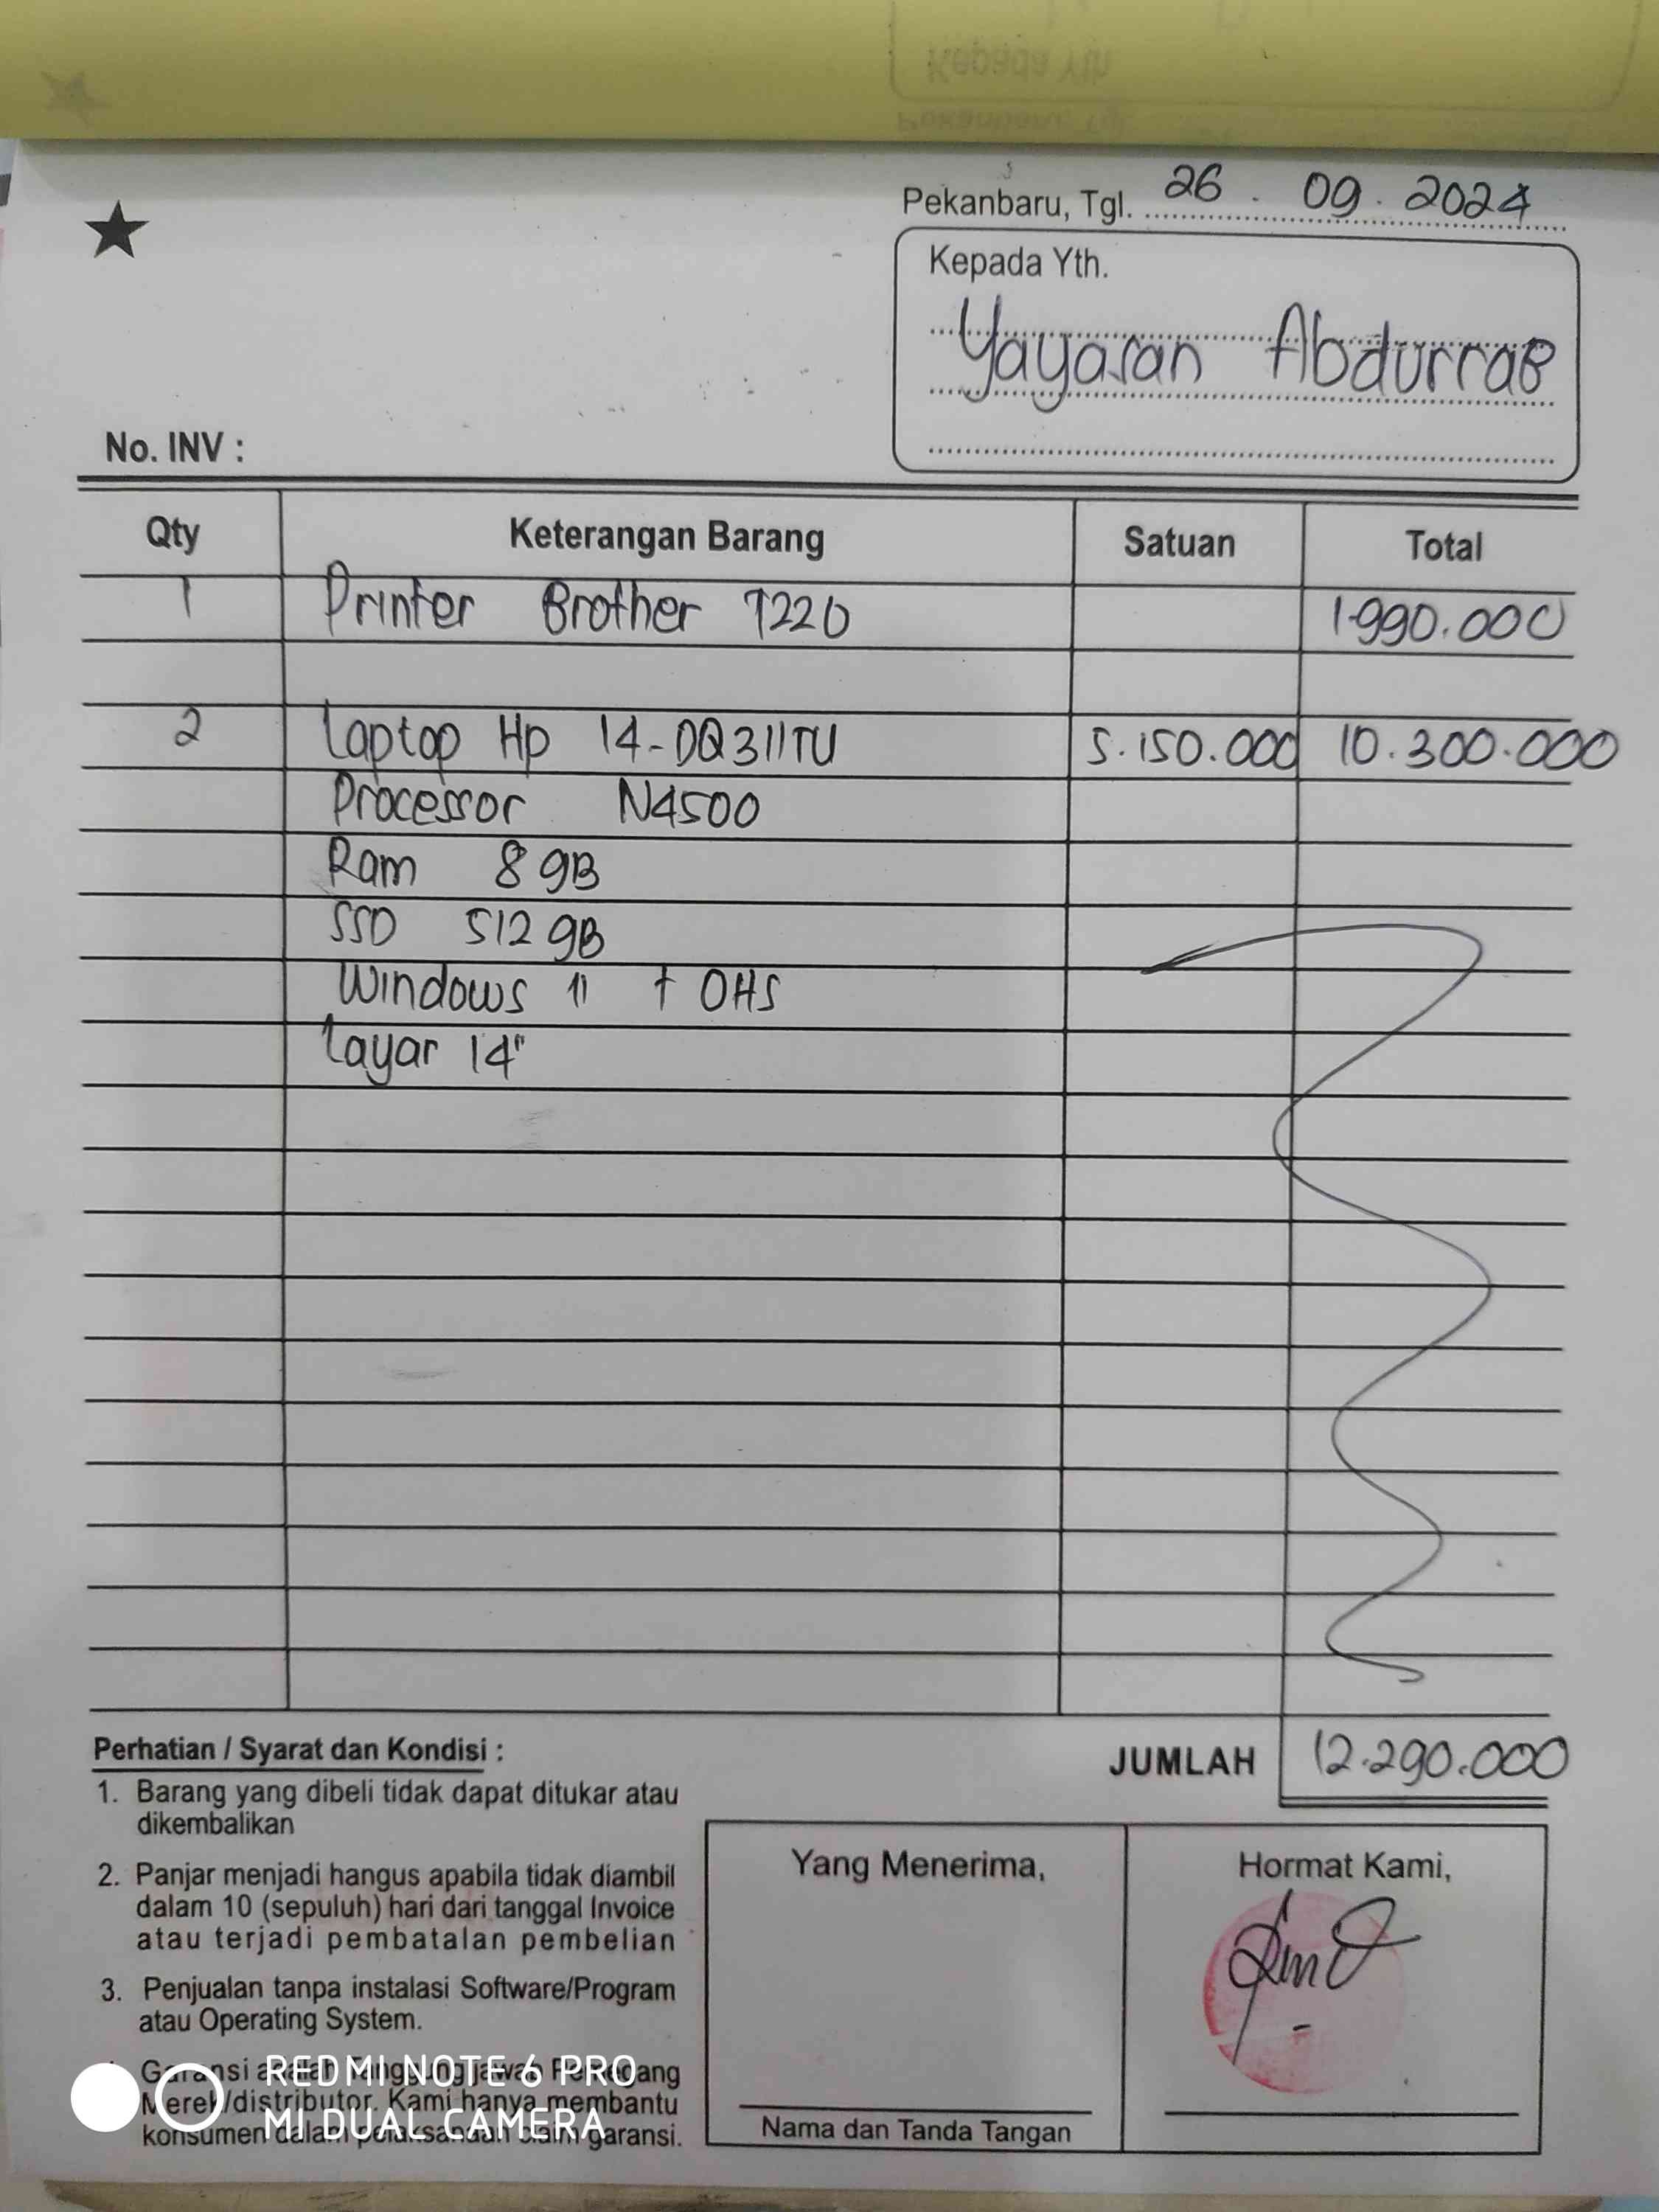 Kepada Yth
Pekanbaru, Tgl. 26 . 09 . 2024
Kepada Yth.
Yayasan Abdurrab
No. INV :
Qty Keterangan Barang Satuan Total
1 Printer Brother T220 1.990.000
2 Laptop Hp 14-DQ311TU 5.150.000 10.300.000
Processor N4500
Ram 8 gB
SSD 512 gB
Windows 11 + OHS
Layar 14"
JUMLAH 12.290.000
Perhatian / Syarat dan Kondisi :
1. Barang yang dibeli tidak dapat ditukar atau
dikembalikan
2. Panjar menjadi hangus apabila tidak diambil
dalam 10 (sepuluh) hari dari tanggal Invoice
atau terjadi pembatalan pembelian
3. Penjualan tanpa instalasi Software/Program
atau Operating System.
Garansi adalah Tanggung jawab Pemegang
Merek/distributor. Kami hanya membantu
konsumen dalam pelaksanaan claim garansi.
Yang Menerima,
Nama dan Tanda Tangan
Hormat Kami,
REDMI NOTE 6 PRO
MI DUAL CAMERA